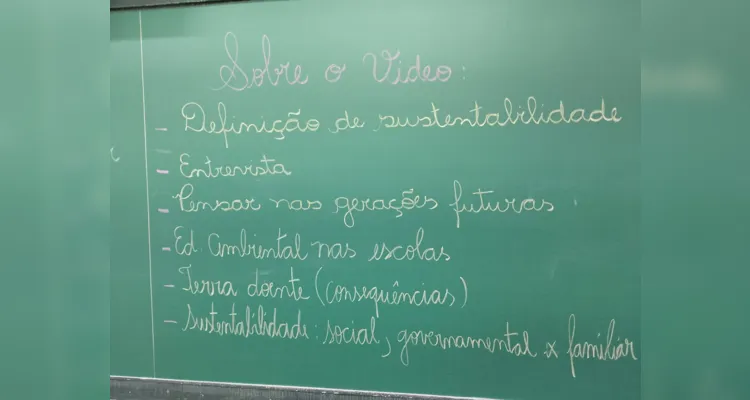 Sobre o Video:
- Definição de sustentabilidade
- Entrevista
- Pensar nas gerações futuras
- Ed. Ambiental nas escolas
- Terra doente (consequências)
- Sustentabilidade: social, governamental x familiar